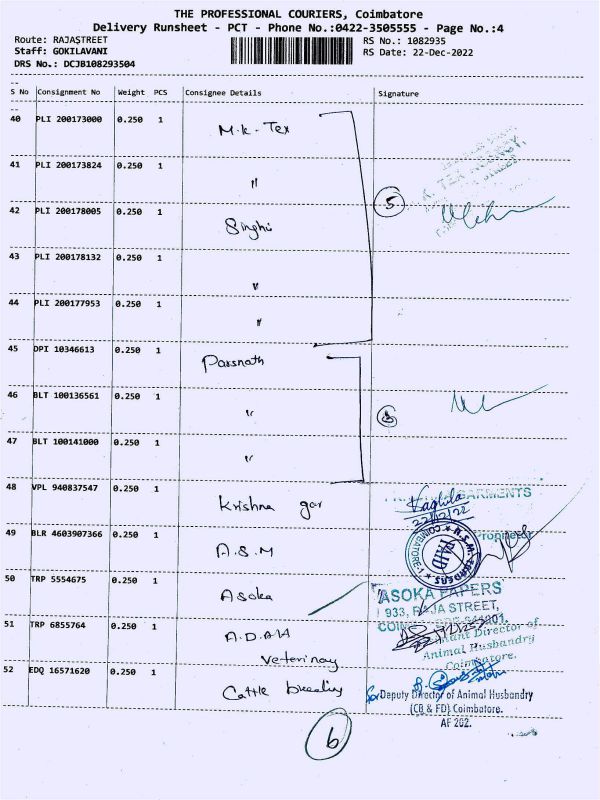 THE PROFESSIONAL COURIERS, Coimbatore
Delivery Runsheet - PCT - Phone No.:0422-3505555 - Page No.:4
Route: RAJASTREET
Staff: GOKILAVANI
DRS No.: DCJB108293504
RS No.: 1082935
RS Date: 22-Dec-2022
S No Consignment No Weight PCS Consignee Details Signature
40 PLI 200173000 0.250 1 M.K. Tex
41 PLI 200173824 0.250 1 "
42 PLI 200178005 0.250 1 Singhi
43 PLI 200178132 0.250 1 "
44 PLI 200177953 0.250 1 "
5
45 DPI 10346613 0.250 1 Parsnath
46 BLT 100136561 0.250 1 "
47 BLT 100141000 0.250 1 "
48 VPL 940837547 0.250 1 Krishna gar
GARMENTS
22/12/22
Proprietor
49 BLR 4603907366 0.250 1 A.S.M
COIMBATORE
PAID
50 TRP 5554675 0.250 1 Asoka
ASOKA PAPERS
933, RAJA STREET,
51 TRP 6855764 0.250 1 A.D.A.H
Veterinay
Director of
Animal Husbandry
Coimbatore.
52 EDQ 16571620 0.250 1 Cattle breeding
for Deputy Director of Animal Husbandry
(CB & FD) Coimbatore.
AF 202.
6